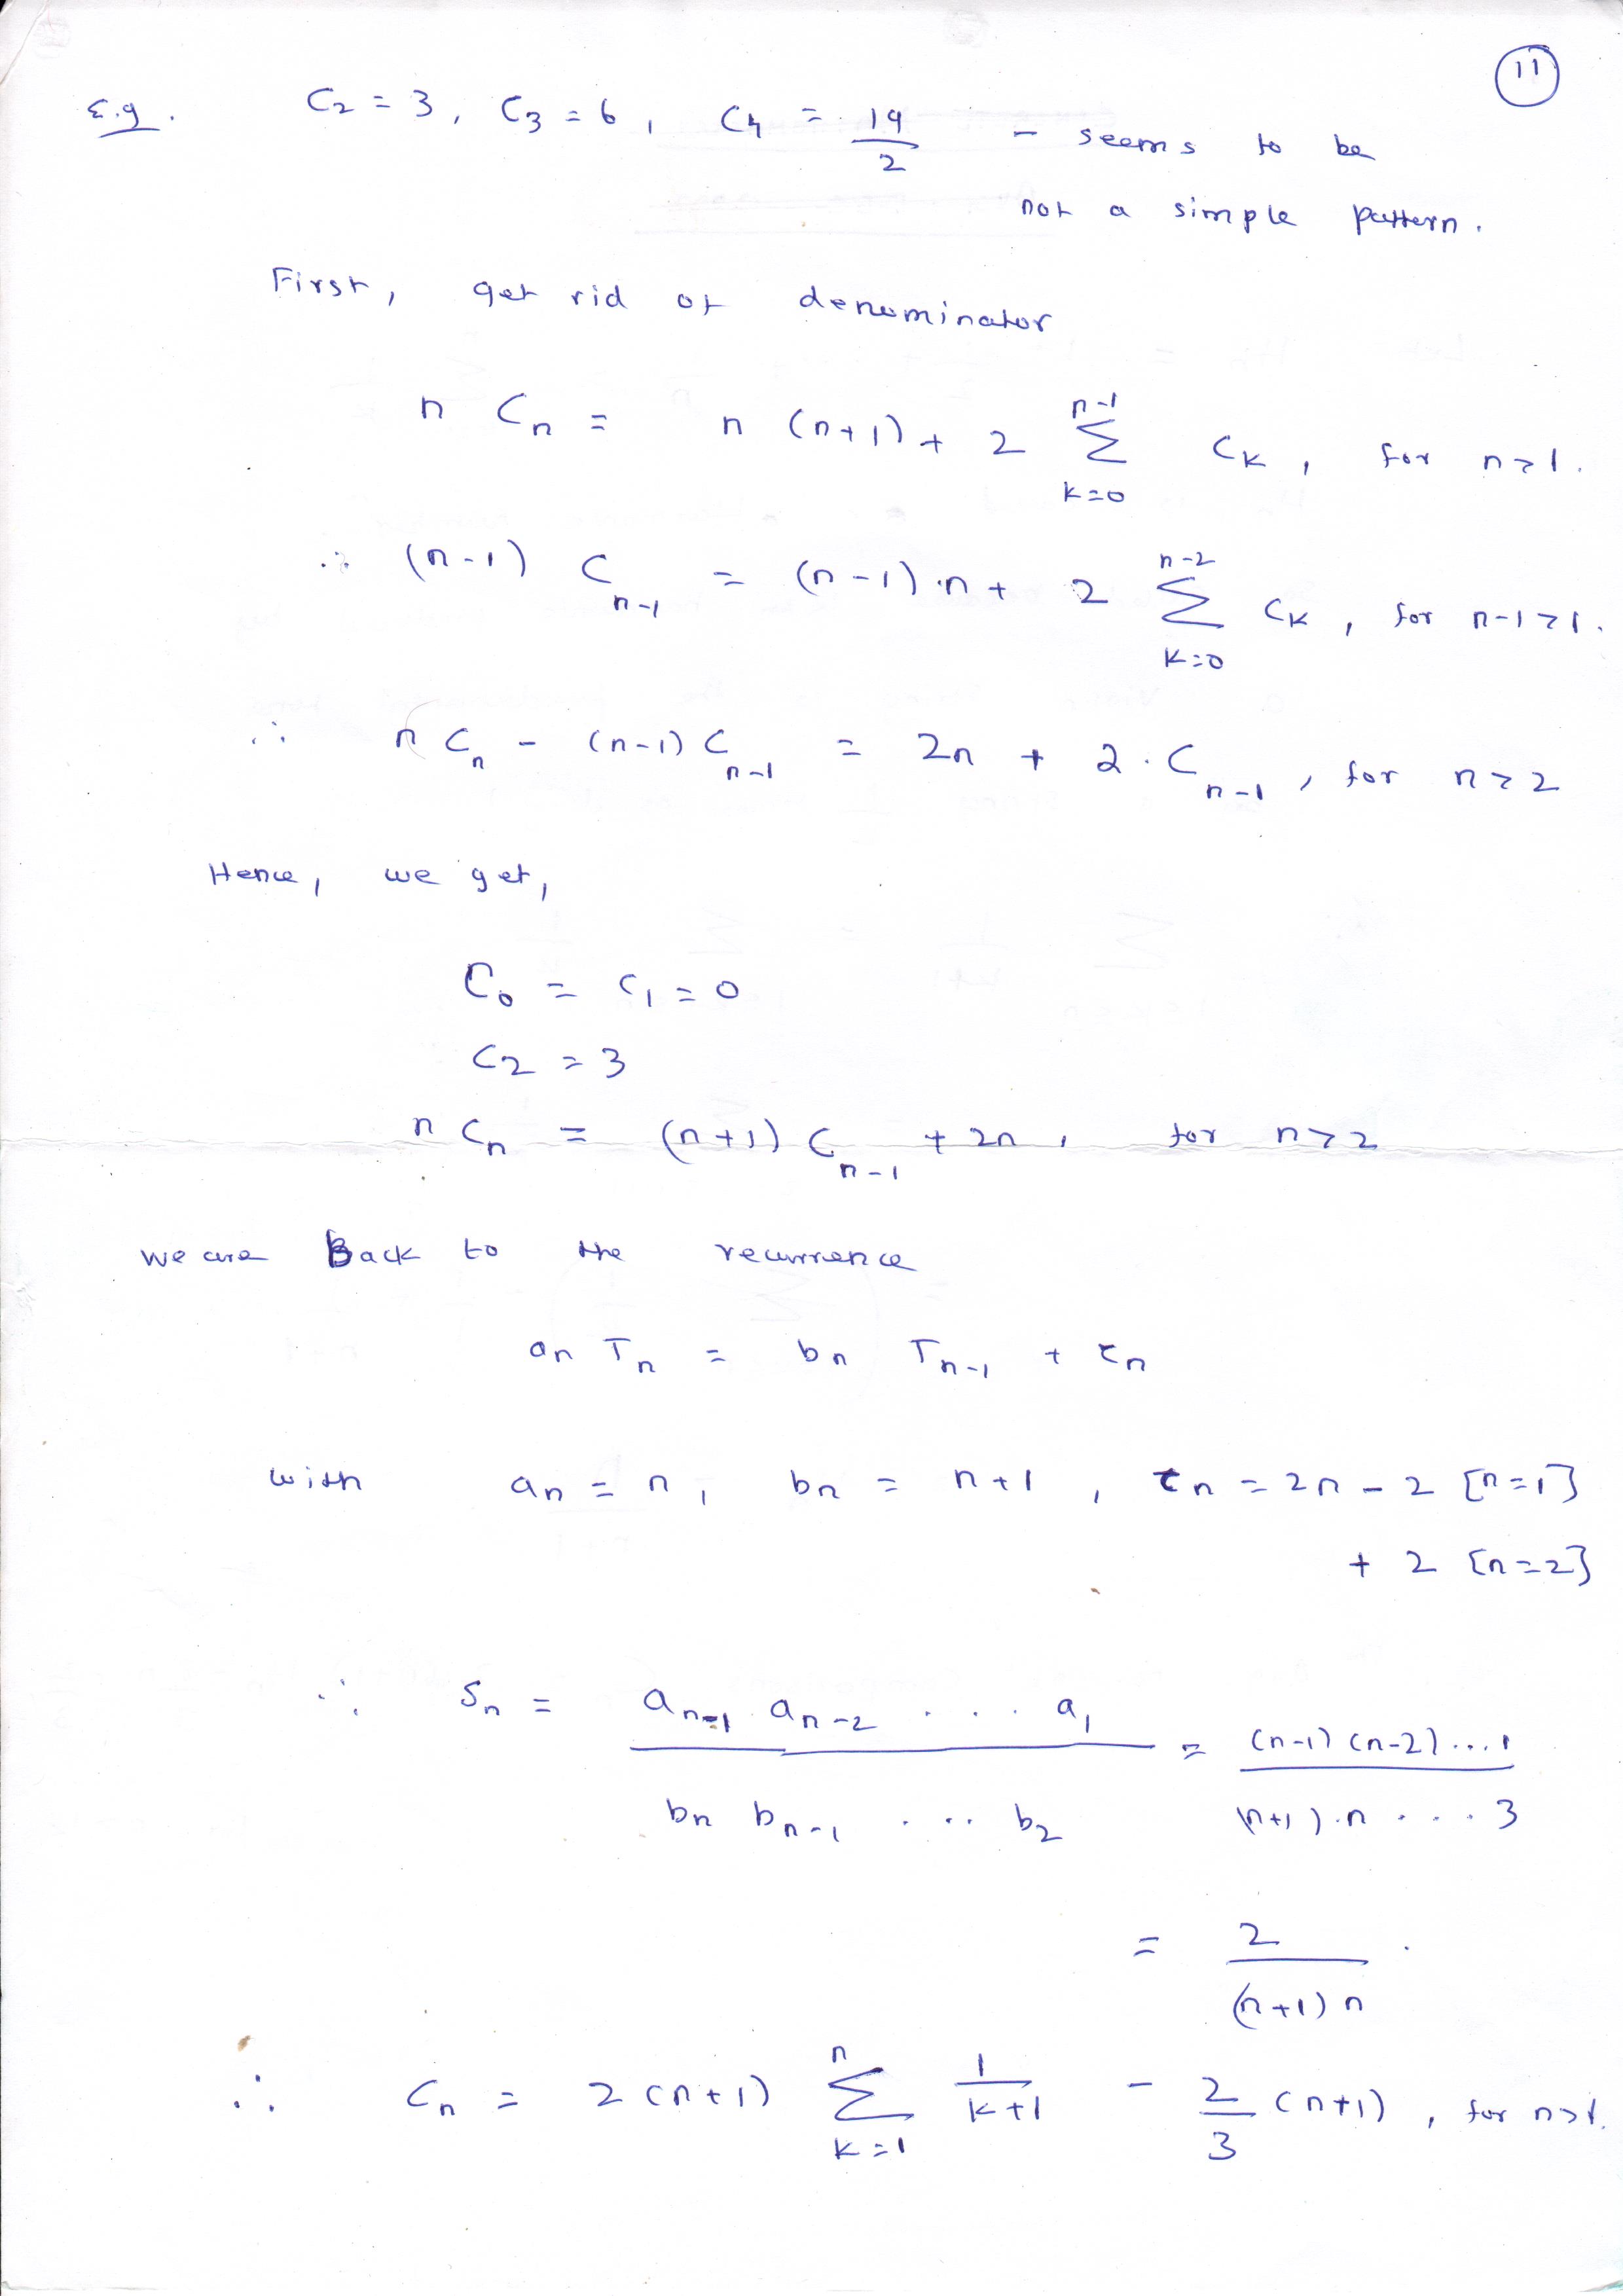 11
E.g. C₂ = 3, C₃ = 6, C₄ = 19/2 – seems to be
not a simple pattern.
First, get rid of denominator
n Cₙ = n (n+1) + 2 Σ_{k=0}^{n-1} C_k, for n>1.
∴ (n-1) C_{n-1} = (n-1)·n + 2 Σ_{k=0}^{n-2} C_k, for n-1>1.
∴ n Cₙ - (n-1) C_{n-1} = 2n + 2·C_{n-1}, for n>2
Hence, we get,
C₀ = C₁ = 0
C₂ = 3
n Cₙ = (n+1) C_{n-1} + 2n, for n>2
we are Back to the recurrence
aₙ Tₙ = bₙ T_{n-1} + cₙ
with aₙ = n, bₙ = n+1, cₙ = 2n - 2 [n=1]
+ 2 [n=2]
∴ Sₙ = (a_{n-1} a_{n-2} .... a₁)/(bₙ b_{n-1} .... b₂) = ((n-1)(n-2)....1)/((n+1).n ....3)
= 2/((n+1) n).
∴ Cₙ = 2(n+1) Σ_{k=1}^{n} 1/(k+1) - 2/3 (n+1), for n>1.